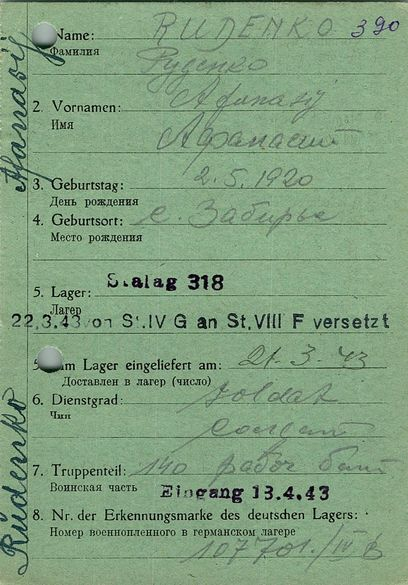 1. Name: RUDENKO 390
Фамилия Руденко
2. Vornamen: Afanasij
Имя Афанасий
3. Geburtstag: 2.5.1920
День рождения
4. Geburtsort: с. Забирье
Место рождения
5. Lager: Stalag 318
Лагер
22.3.43 von St.IV G an St.VIII F versetzt
am Lager eingeliefert am: 21.3.43
Доставлен в лагер (число)
6. Dienstgrad: Soldat
Чин Солдат
7. Truppenteil: 140 рабоч бат
Воинская часть Eingang 13.4.43
8. Nr. der Erkennungsmarke des deutschen Lagers:
Номер военнопленного в германском лагере
107701/IV B
Afanasij
Rudenko